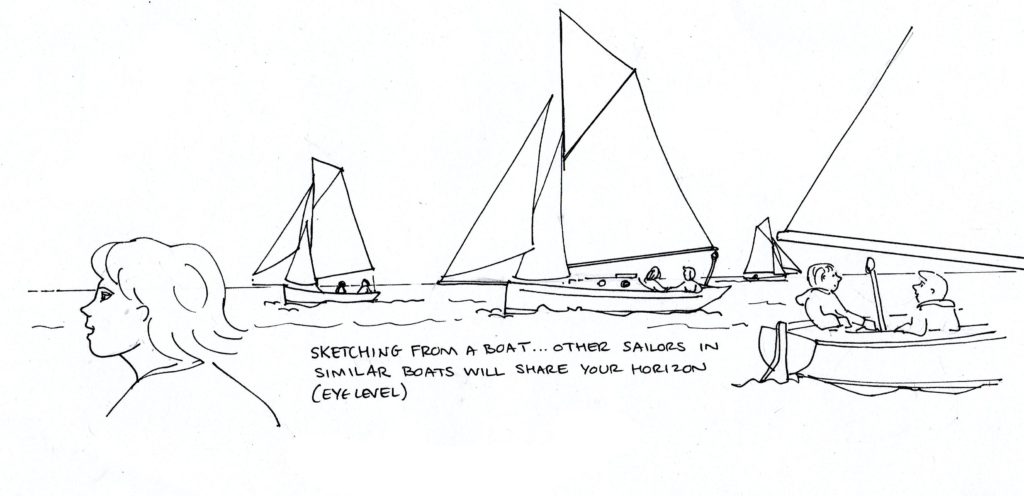 SKETCHING FROM A BOAT... OTHER SAILORS IN
SIMILAR BOATS WILL SHARE YOUR HORIZON
(EYE LEVEL)